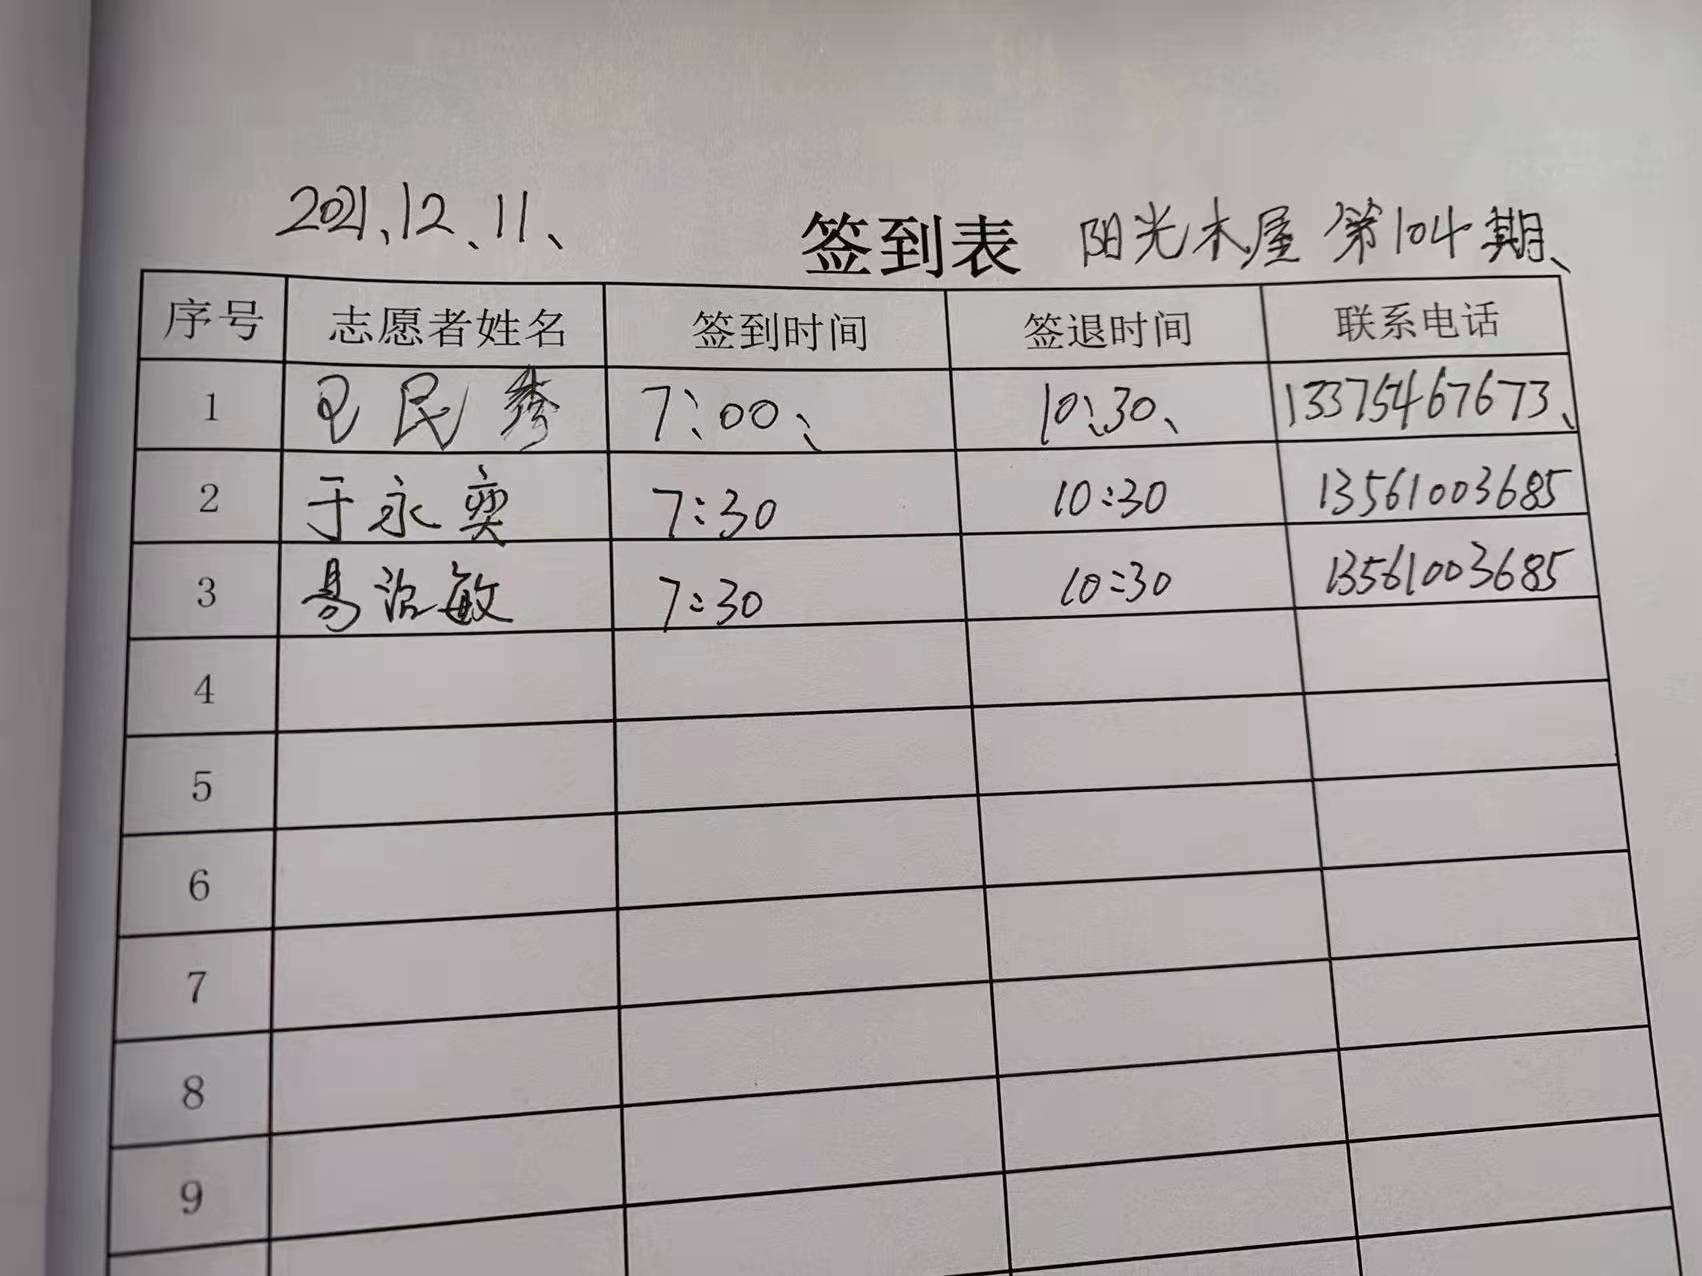 2021、12、11、
签到表 阳光木屋 第104期、
序号 志愿者姓名 签到时间 签退时间 联系电话
1 民秀 7:00、 10:30、 13375467673、
2 于永奕 7:30 10:30 13561003685
3 易治敏 7:30 10:30 13561003685
4
5
6
7
8
9